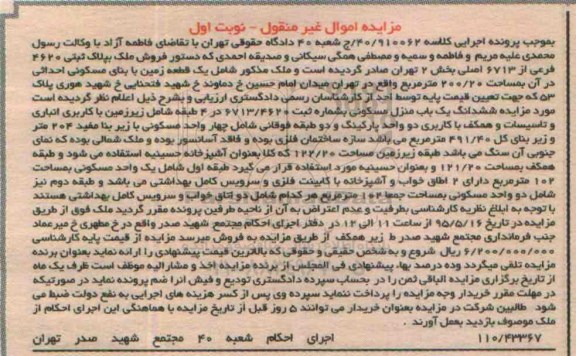 مزایده اموال غیر منقول - نوبت اول
بموجب پرونده اجرایی کلاسه ۹۱۰۰۶۲/۴۰/ج شعبه ۴۰ دادگاه حقوقی تهران با تقاضای فاطمه آزاد با وکالت رسول
محمدی علیه مریم و فاطمه و سمیه و مصطفی همگی سیکانی و صدیقه احمدی که دستور فروش ملک بپلاک ثبتی ۴۶۲۰
فرعی از ۶۷۱۳ اصلی بخش ۲ تهران صادر گردیده است و ملک مذکور شامل یک قطعه زمین با بنای مسکونی احداثی
در آن بمساحت ۲۰۰/۲۰ مترمربع واقع در تهران میدان امام حسین خ دماوند خ شهید فتحنایی خ شهید هوری پلاک
۵۳ که جهت تعیین قیمت پایه توسط احد از کارشناسان رسمی دادگستری ارزیابی و بشرح ذیل اعلام نظر گردیده است
مورد مزایده ششدانگ یک باب منزل مسکونی بشماره ثبت ۶۷۱۳/۴۶۲۰ در ۴ طبقه شامل زیرزمین با کاربری انباری
و تاسیسات و همکف با کاربری دو واحد پارکینگ و دو طبقه فوقانی شامل چهار واحد مسکونی با زیر بنا مفید ۲۰۴ متر
و زیر بنای کل ۴۹۱/۴۰ مترمربع می باشد سازه ساختمان فلزی بوده و فاقد آسانسور بوده و ملک شمالی بوده که نمای
جنوبی آن سنگ می باشد طبقه زیرزمین مساحت ۱۲۲/۲۰ که کلا بعنوان آشپزخانه حسینیه استفاده می شود و طبقه
همکف بمساحت ۱۲۱/۲۰ و بعنوان حسینیه مورد استفاده قرار می گیرد طبقه اول شامل یک واحد مسکونی بمساحت
۱۰۲ مترمربع دارای ۲ اطاق خواب و آشپزخانه با کابینت فلزی و سرویس کامل بهداشتی می باشد و طبقه دوم نیز
شامل دو واحد مسکونی بمساحت جمعا مترمربع هر کدام شامل دو اتاق خواب و سرویس کامل بهداشتی هستند
با توجه به ابلاغ نظریه کارشناسی بطرفیت و عدم اعتراض به آن از ناحیه طرفین پرونده مقرر گردید ملک فوق از طریق
مزایده در تاریخ ۹۵/۵/۱۶ از ساعت ۱۱ الی ۱۲ در دفتر اجرای احکام مجتمع شهید صدر واقع در خ مطهری خ میرعماد
جنب فرمانداری مجتمع شهید صدر ط زیر همکف از طریق مزایده به فروش میرسد مزایده از قیمت پایه کارشناسی
۶/۲۰۰/۰۰۰/۰۰۰ ریال شروع و به شخص حقیقی و حقوقی که بالاترین قیمت پیشنهادی را ارائه نماید بعنوان برنده
مزایده تلقی میگردد وده درصد بها، پیشنهادی فی المجلس از برنده مزایده اخذ و مشارالیه موظف است ظرف یک ماه
از تاریخ برگزاری مزایده الباقی ثمن را در بحساب سپرده دادگستری تودیع و فیش انرا ضم پرونده نماید در صورتیکه
در مهلت مقرر خریدار وجه مزایده را پرداخت ننماید سپرده وی پس از کسر هزینه های اجرایی به نفع دولت ضبط می
شود طالبین شرکت در مزایده بعنوان خریدار می توانند ۵ روز قبل از تاریخ مزایده با هماهنگی این اجرای احکام از
ملک موصوف بازدید بعمل آورند .
۱۱۰/۴۳۳۶۷ اجرای احکام شعبه ۴۰ مجتمع شهید صدر تهران